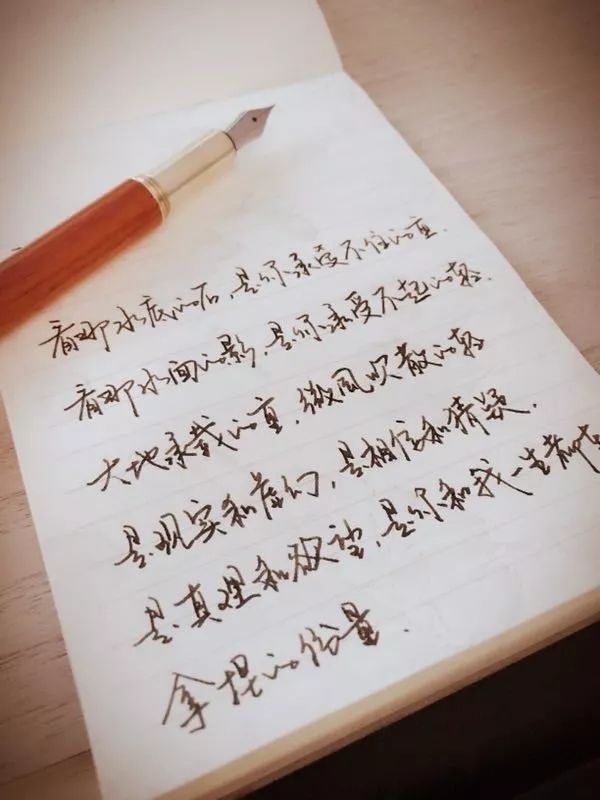 看那水底的石，是你承受不住的重.
看那水面的影，是你承受不起的轻.
大地承载的重，微风吹散的轻
是现实和虚幻，是相信和猜疑.
是真理和欲望，是你和我一生都在
拿捏的份量.